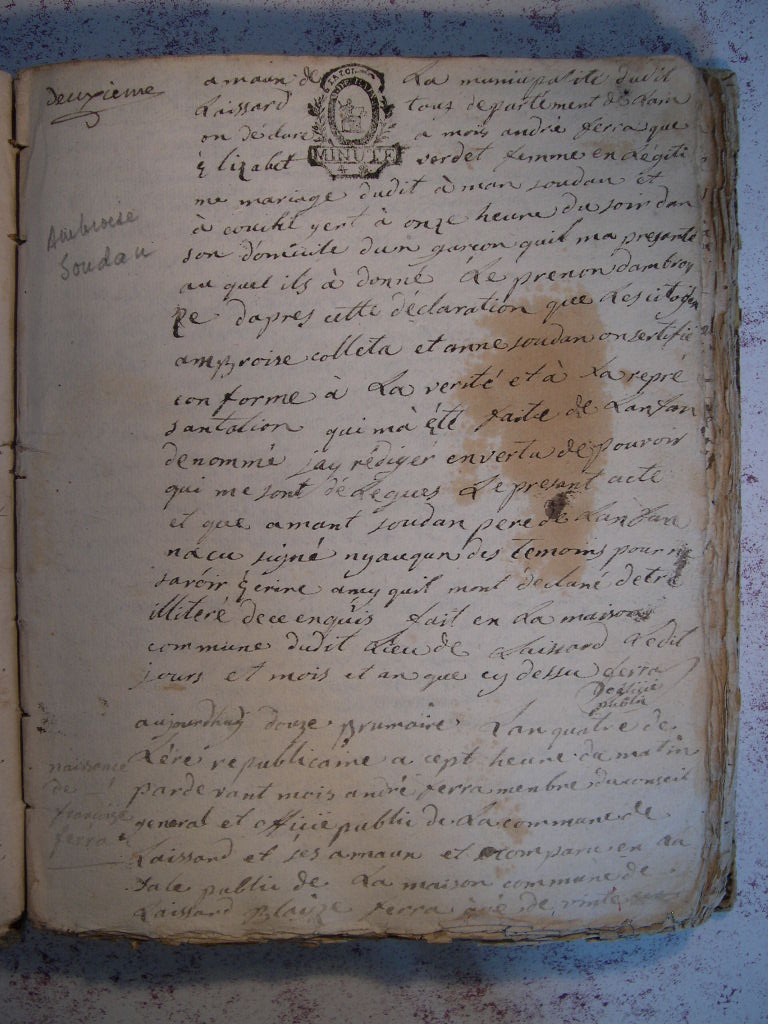 Deuxième
amaun de La municipalité dudit
Laissard tous departement de Lain
on déclare a mois andré ferra que
Elizabet verdet femme en Légiti
MINUTE
me mariage dudit à man soudan et
à couché yert à onze heure du soir dan
son domicile dun garçon quil ma presanté
au quel ils à donné Le prenon dambroy
ze dapres cette déclaration que Les citoyen
ambroise colleta et anne soudan on sertifié
conforme à La verité et à La repré
santation qui mà été faite de Lanfan
denommé jay rédiger en vertu de pouvoir
qui me sont délegues Le presant acte
et que amant soudan pere de Lanfan
na cu signé ny auqun des temoins pour ne
savoir Ecrire amy quil mont déclané detre
illitéré de ce enquis fait en La maison
commune dudit Lieu de Laissard Ledit
jours et mois et an que cy dessu ferra
oficié
publi
Ambroise
Soudan
aujourdhuy douze Brumaire Lan quatre de
Lére republicaine a cept heure du matin
pardevant mois andré ferra menbre du conseil
general et officié public de La commune de
Laissard et ses amaun et comparu en La
sale public de La maison commune de
Laissard Blaize ferra de vinte
naissance
de
françoise
ferra